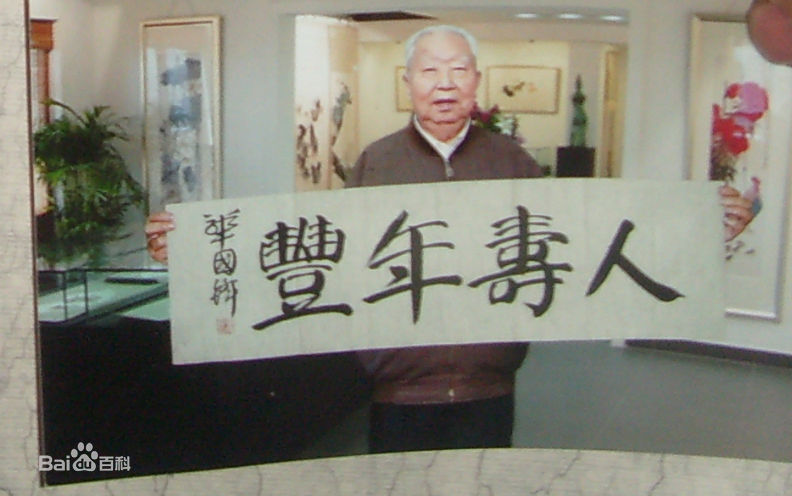 人壽年豐
華國鋒
Bai百科